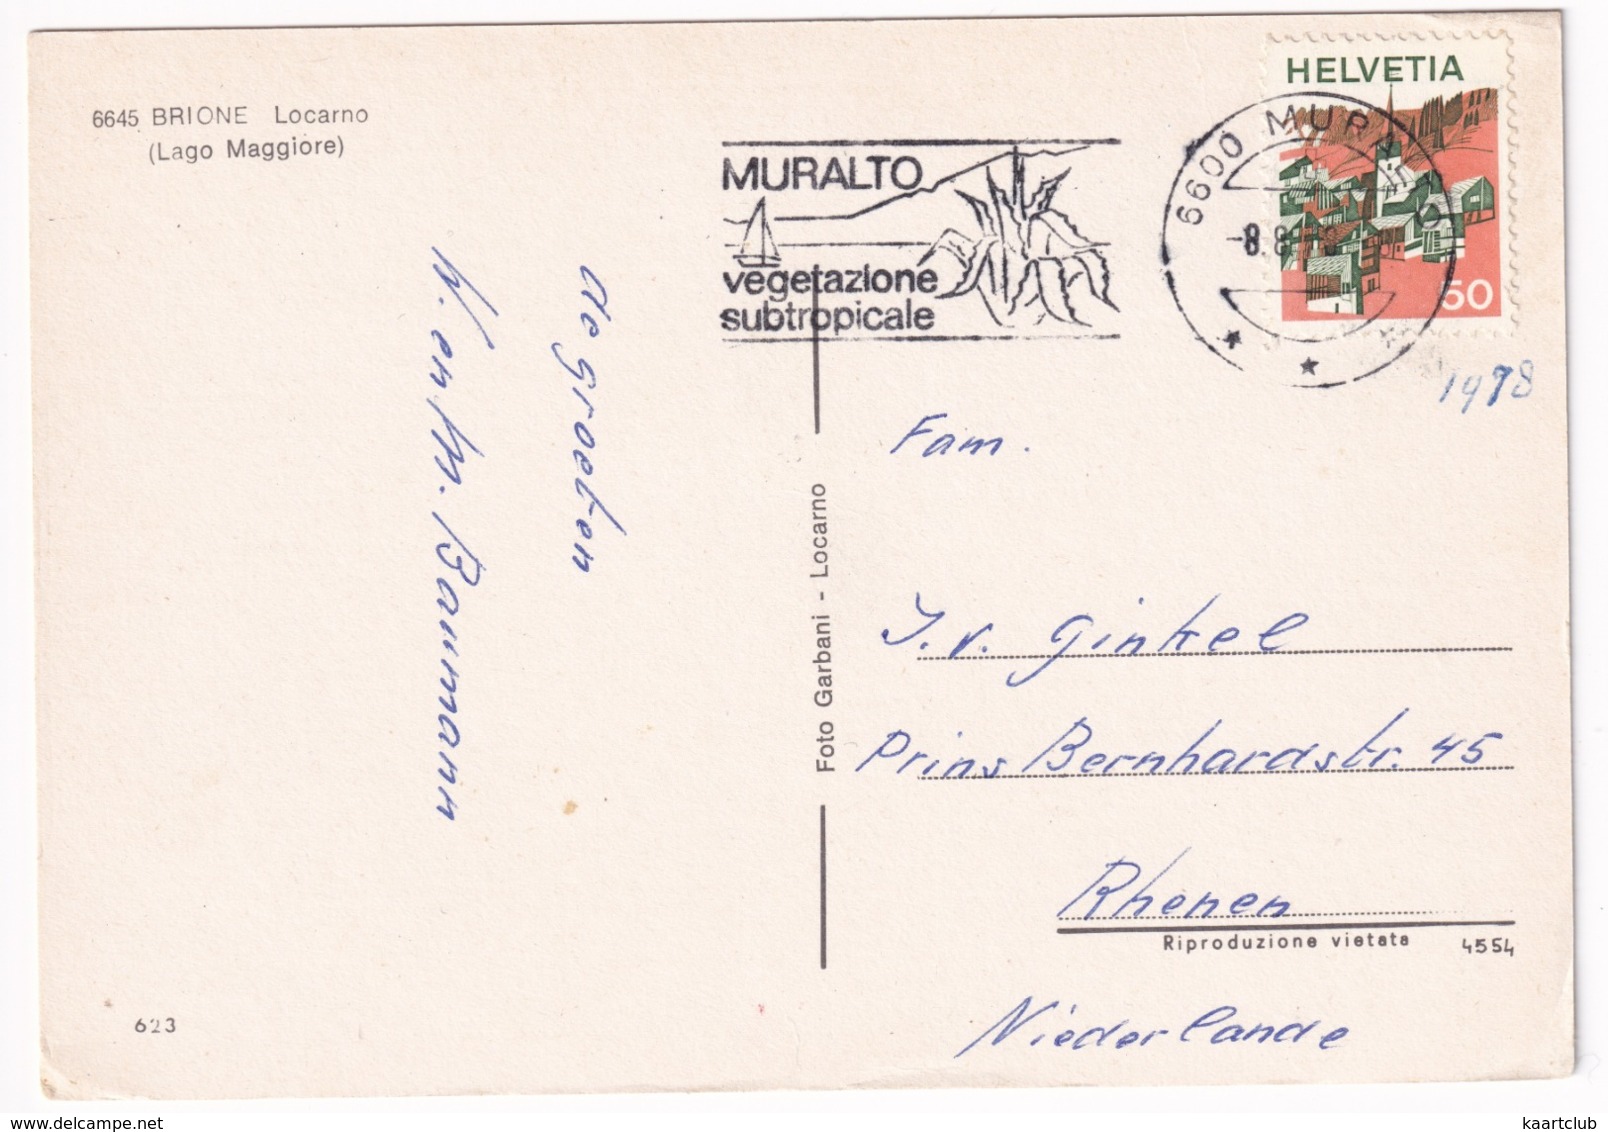 6645 BRIONE Locarno
(Lago Maggiore)
MURALTO
vegetazione
subtropicale
6600 MURALTO
HELVETIA
50
1978
de groeten
W. en M. Baumann
Foto Garbani - Locarno
Fam.
J. v. Ginkel
Prins Bernhardstr. 45
Rhenen
Riproduzione vietata 4554
Niederlande
623
www.delcampe.net
kaartclub